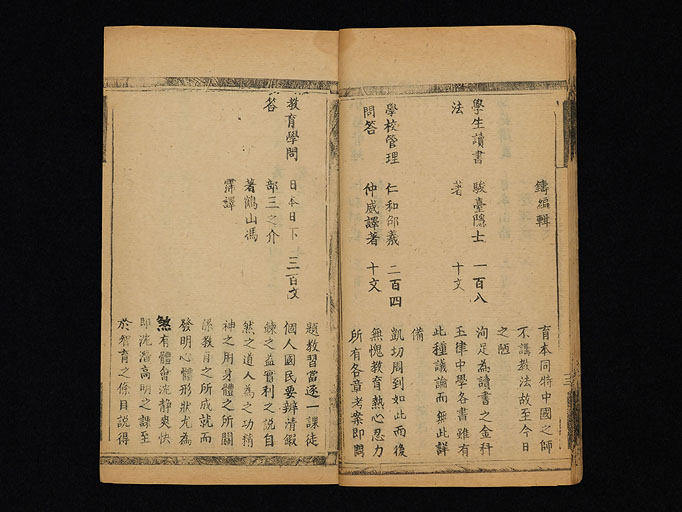 鑄編輯
育本同特中國之師
不講教法故至今日
之陋
學生讀書 駿臺隱士 一百八
法 著 十文
洵足為讀書之金科
玉律中學各書雖有
此種議論而無此詳
備
學校管理 仁和邵羲 二百四
問答 仲威譯著 十文
凱切周到如此而後
無愧教育熱心忍力
所有各章考案即問
題教習當逐一課徒
教育學問 日本日下 三百文
答 部三之介
著鶴山馮
霈譯
個人國民要辨清鍜
練之益實利之說自
然之道人為之功精
神之用身體之所關
係教育之所成就而
發明心體形狀尤為
煞有體會沈靜爽快
即沈潛高明之課至
於智育之條目說得